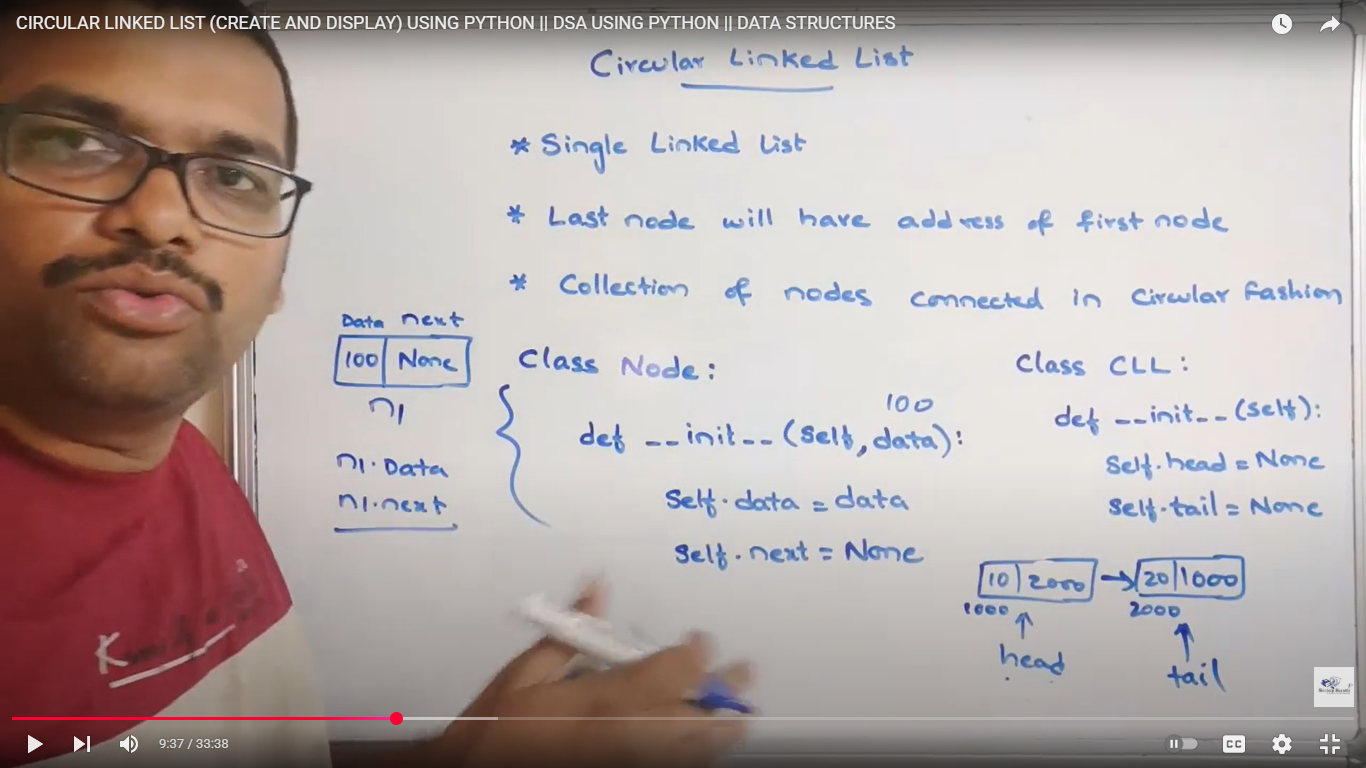 CIRCULAR LINKED LIST (CREATE AND DISPLAY) USING PYTHON || DSA USING PYTHON || DATA STRUCTURES
Circular Linked List
* Single Linked List
* Last node will have address of first node
* Collection of nodes connected in Circular Fashion
Data next
100 None
n1
n1.Data
n1.next
Class Node:
100
def __init__(self, data):
Self.data = data
Self.next = None
Class CLL:
def __init__(self):
Self.head = None
Self.tail = None
10 2000 → 20 1000
1000 2000
head tail
9:37 / 33:38
CC